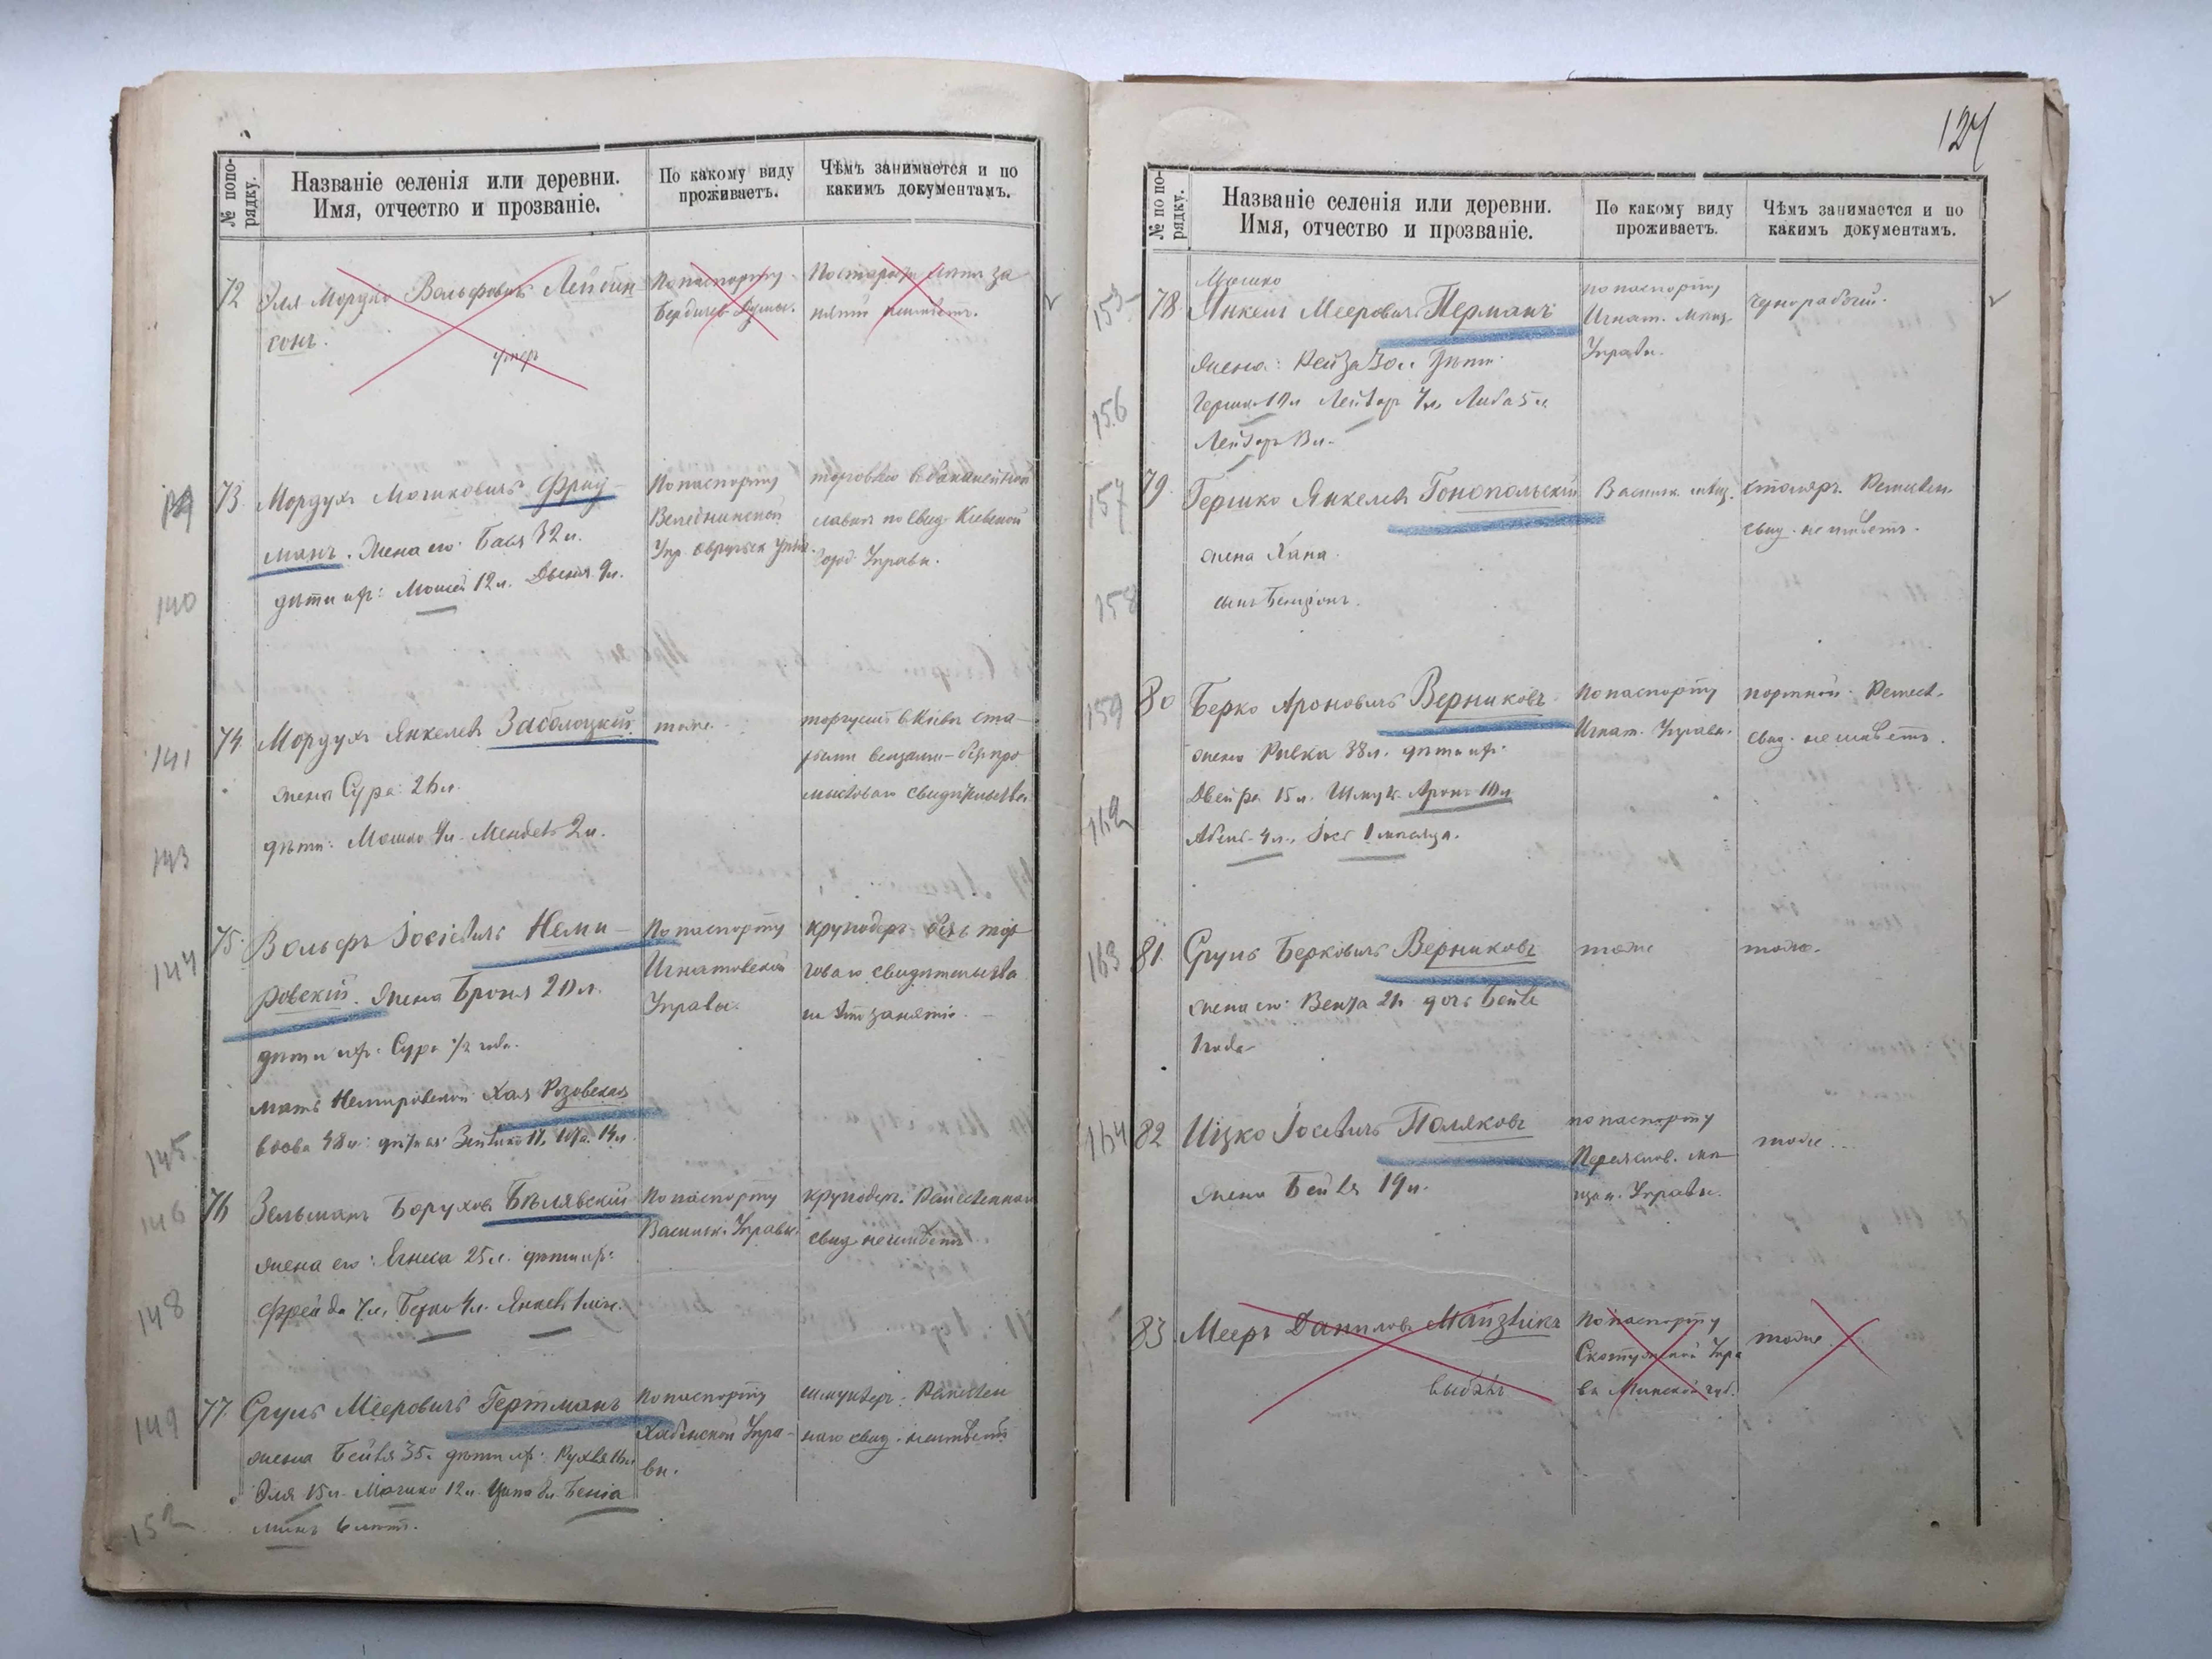 № попо-
рядку.
Названіе селенія или деревни.
Имя, отчество и прозваніе.
По какому виду
проживаетъ.
Чѣмъ занимается и по
какимъ документамъ.
72 Эля Мордко Вольфовичъ Лейбин
сонъ.
умеръ
По паспорту
Бердичев. Думы.
По старости лѣтъ за
нятій не имѣетъ.
139
73 Мордухъ Мошковичъ Фрид-
манъ. Жена его: Бася 32 л.
дѣти их: Мошко 12 л. Двойра 9 л.
140
По паспорту
Веледникской
Упр. Овручск. уѣзд.
торговля в бакалейной
лавкѣ по свид. Кіевской
Город. Управы.
141
74 Мордухъ Янкелев Заблоцкій
жена Сура 26 л.
дѣти: Мошко 4 л. Мендель 2 л.
143
тоже.
торгуетъ в Кіевѣ ста-
рыми вещами - без про
мысловаго свидѣтельства
144
75 Вольфъ Іосіевичъ Неми-
ровскій. Жена Броня 20 л.
дѣти их: Сура 1/2 года.
мать Немировской Хая Розовская
вдова 48 л:
145.
По паспорту
Игнатовской
Управы.
круподеръ. безъ тор
говаго свидѣтельства
на это занятіе.
146
76 Зельманъ Борухов Бѣлявскій
жена его: Ягнеса 25 л. дѣти их:
Фрейда 7 л, Берко 4 л. Янкель 1 мѣс.
148
По паспорту
Васильк. Управы.
круподеръ. Ремесленнаго
свид. не имѣетъ
149
77. Сруль Мееровичъ Гертманъ
жена Бейля 35. дѣти их: Рухля 16 л
Эля 15 л. Мошко 12 л. Ципа 8 л. Беніа
минъ 6 лѣтъ.
152
По паспорту
Хабенской Упра-
вы.
штукатеръ. Ремеслен
наго свид. не имѣетъ
124
№ по по-
рядку.
Названіе селенія или деревни.
Имя, отчество и прозваніе.
По какому виду
проживаетъ.
Чѣмъ занимается и по
какимъ документамъ.
153
Мошко
78. Янкель Мееровичъ Перманъ
жена: Рейза 30 л. дѣти:
Гершко 10 л Лейзоръ 7 л, Либа 5 л.
Лейзоръ 3 л.
156
по паспорту
Игнат. Мѣщ.
Управы.
чернорабочій.
157
79. Гершко Янкелев Гонопольскій
жена Хана.
сынъ Бенціонъ.
158
Васильк. мѣщ.
столяръ. Ремеслен.
свид. не имѣетъ.
159
80 Берко Ароновичъ Верниковъ.
жена Ривка 38 л. дѣти их:
Двейра 15 л. Шмуль Аронъ 10 л
Абель 4 л., Іосъ 1 мѣсяца.
162
По паспорту
Игнат. Управы.
портной. Ремесл.
свид. не имѣетъ.
163
81. Сруль Берковичъ Верниковъ
жена его: Венза 21 дочь Бейля
1 года
тоже
тоже.
164
82 Ицко Іосевичъ Поляковъ
жена Бейля 19 л.
по паспорту
Переяслов. мѣ
щан. Управы.
тоже.
83 Мееръ Данилов Майзликъ
выбылъ
По паспорту
Упра
вы Минской губ.
тоже